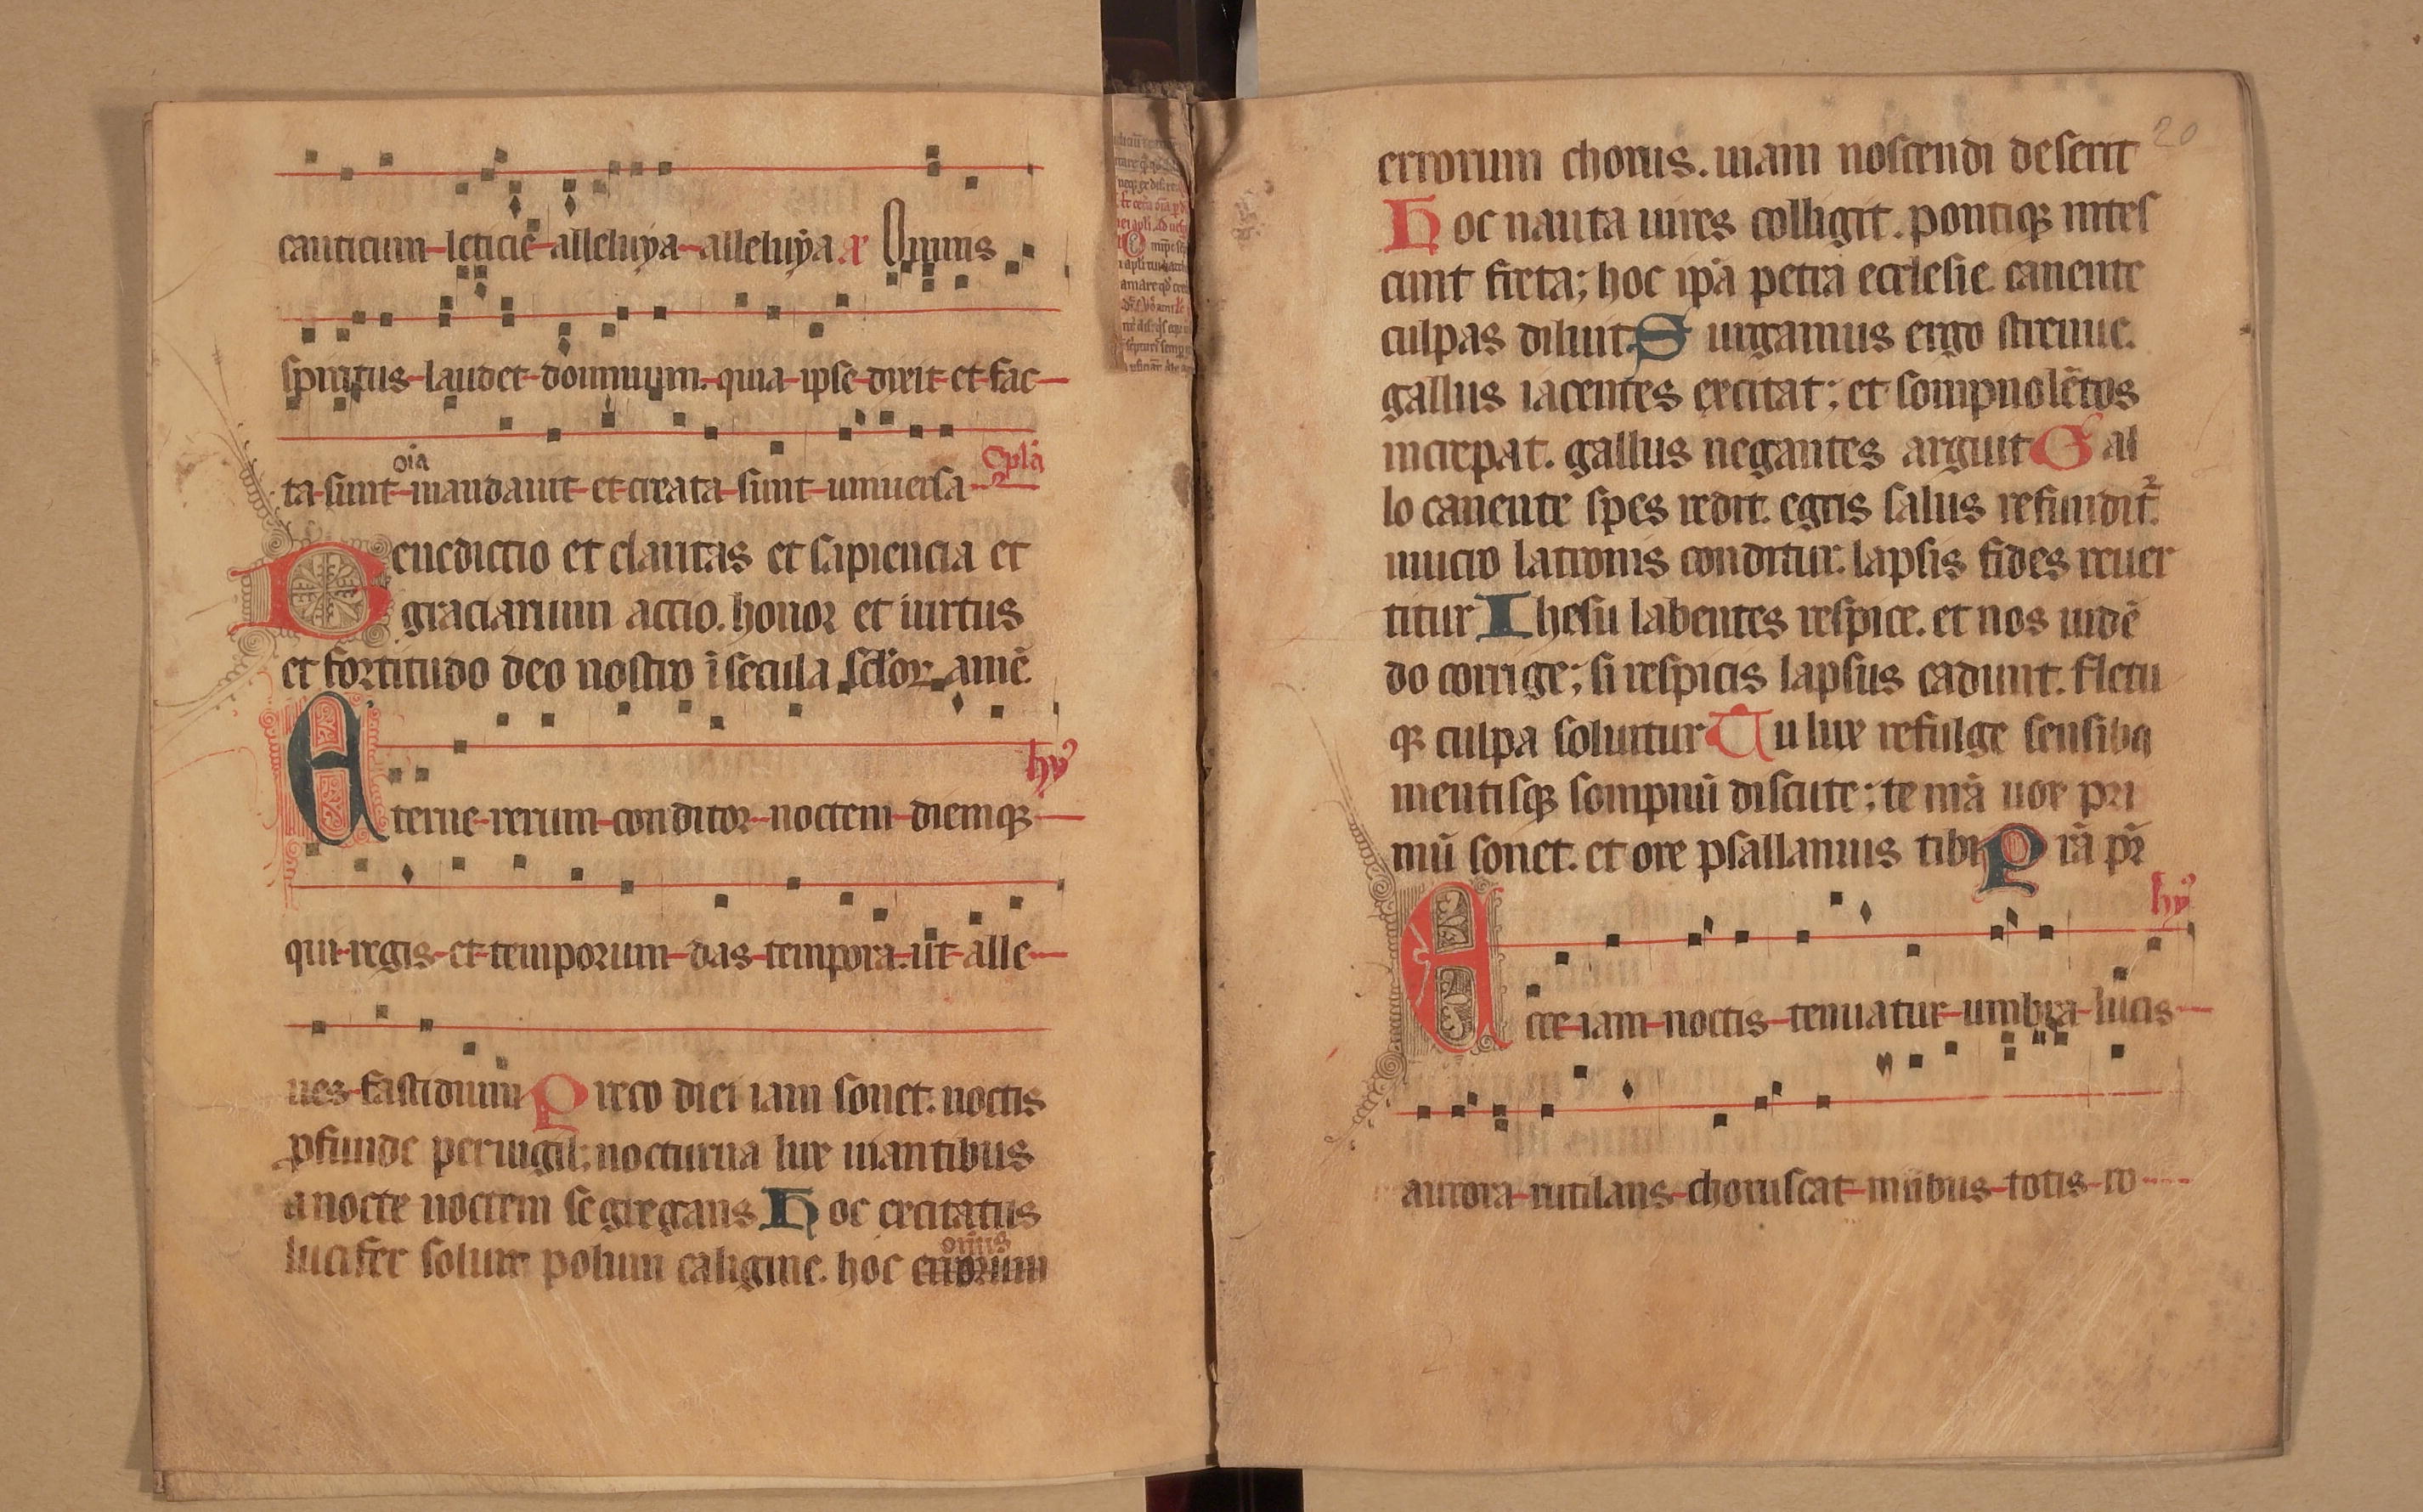 canticum leticie alleluya alleluya ae Omnis
spiritus laudet dominum. quia ipse dixit et fac
oia
ta sunt mandauit et creata sunt uniuersa Cplā
Benedictio et claritas et sapiencia et
graciarum actio. honor et uirtus
et fortitudo deo nostro ī secula sclor. amē.
hy
Aterne rerum conditor noctem diemqꝫ
qui regis et temporum das tempora. ut alle
ues fastidium Preco diei iam sonet. noctis
ꝓfunde peruigil; nocturna lux uiantibus
a nocte noctem segregans Hoc excitatus
lucifer soluit polum caligine. hoc omīs
errorum
20
errorum chorus. uiam noscendi deserit
Hoc nauta uires colligit. pontiqꝫ mites
cunt freta; hoc ipa petra ecclesie canente
culpas diluit Surgamus ergo strenue.
gallus iacentes excitat; et sompnolētos
increpat. gallus negantes arguit Gal
lo canente spes redit. egris salus refundit᷑.
mucro latronis conditur. lapsis fides reuer
titur Ihesu labentes respice. et nos uidē
do corrige; si respicis lapsus cadunt. fletu
qꝫ culpa soluitur Tu lux refulge sensibꝫ
mentisqꝫ sompnū discute; te nrā uox pri
mū sonet. et ore psallamus tibi Prā pr̄
hy
Ecce iam noctis tenuatur umbra lucis
aurora rutilans choruscat nisibus totis ro